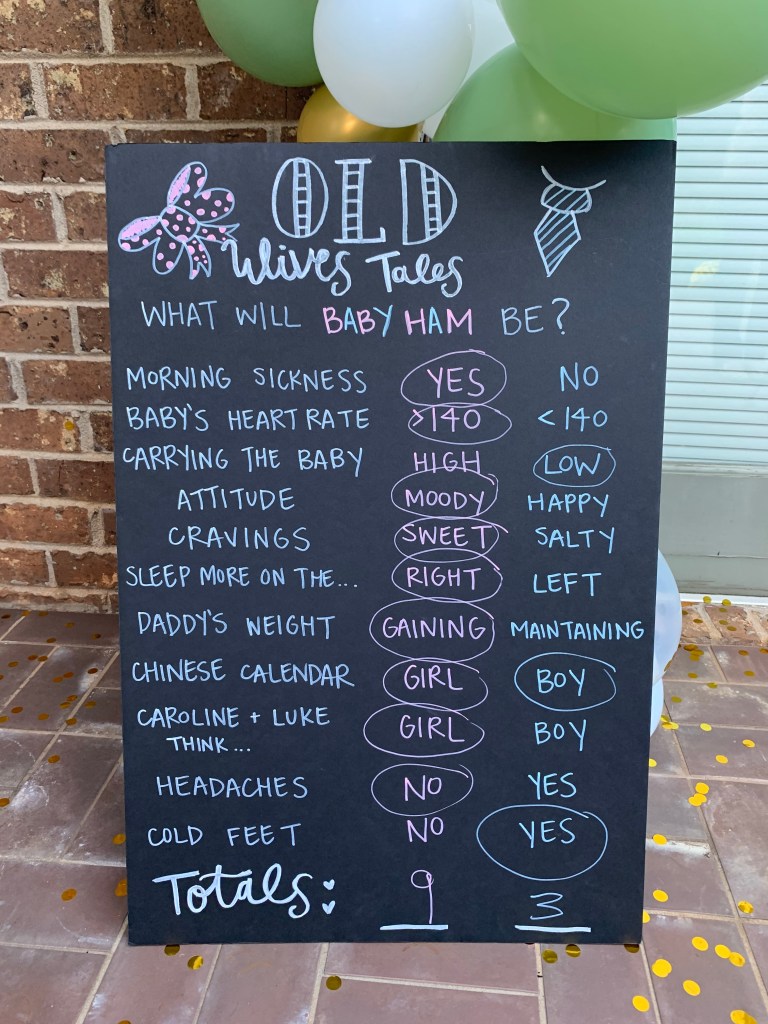 OLD
Wives Tales
WHAT WILL BABY HAM BE?
MORNING SICKNESS YES NO
BABY'S HEARTRATE >140 <140
CARRYING THE BABY HIGH LOW
ATTITUDE MOODY HAPPY
CRAVINGS SWEET SALTY
SLEEP MORE ON THE... RIGHT LEFT
DADDY'S WEIGHT GAINING MAINTAINING
CHINESE CALENDAR GIRL BOY
CAROLINE + LUKE
THINK... GIRL BOY
HEADACHES NO YES
COLD FEET NO YES
Totals: 9 3